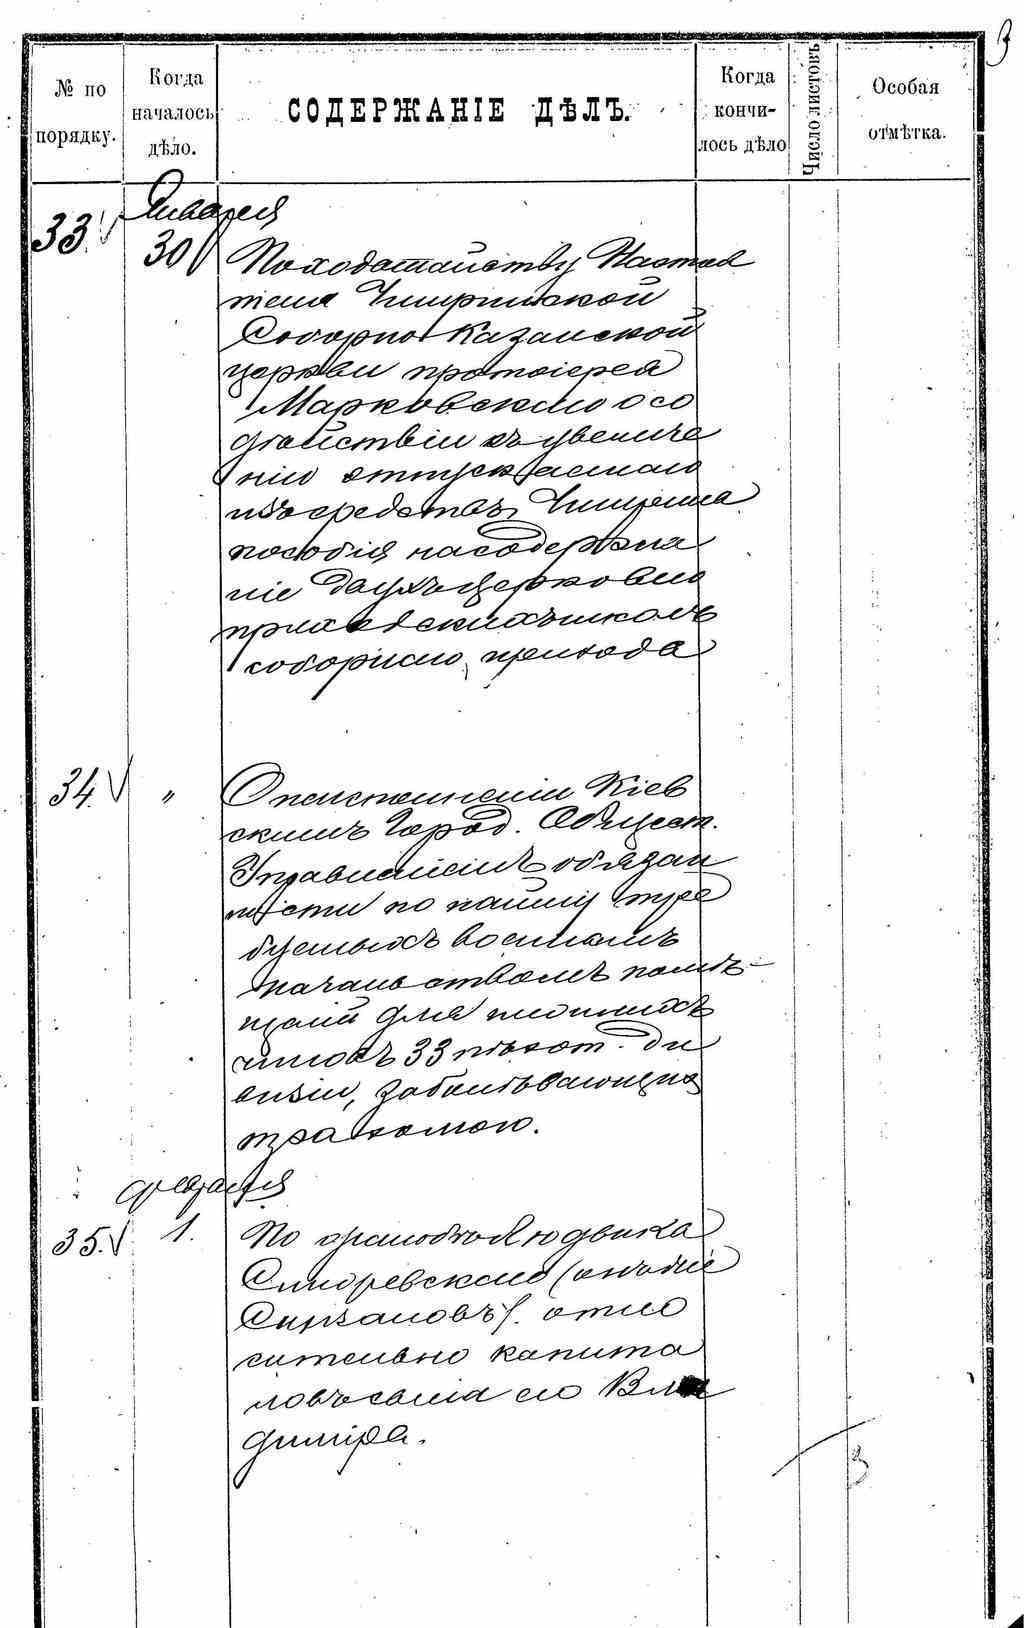 3
№ по порядку.
Когда началось дѣло.
СОДЕРЖАНІЕ ДѢЛЪ.
Когда кончи- лось дѣло
Число листовъ
Особая отмѣтка.
Января
33. 30 По ходатайству Настоя
теля Чигиринской
Соборно Казанской
церкви протоіерея
Марковскаго о со
дѣйствіи къ увеличе
нію отпускаемаго
изъ средствъ Чигирина
пособія на содержа
ніе двухъ церковно
приходскихъ школъ
соборнаго прихода
34. " О неисполненіи Кіев
скимъ Город. Обществ.
Управленіемъ обязан
ности по найму тре
буемыхъ военнымъ
начальствомъ помѣ-
щеній для нижнихъ
чиновъ 33 пѣхот. ди
визіи, заболѣвающихъ
трахомою.
Февраля
35. 1. По просьбѣ Людвика
Сикоревскаго (онъ же
) относительно капита
ловъ сына его Вла
диміра.
3